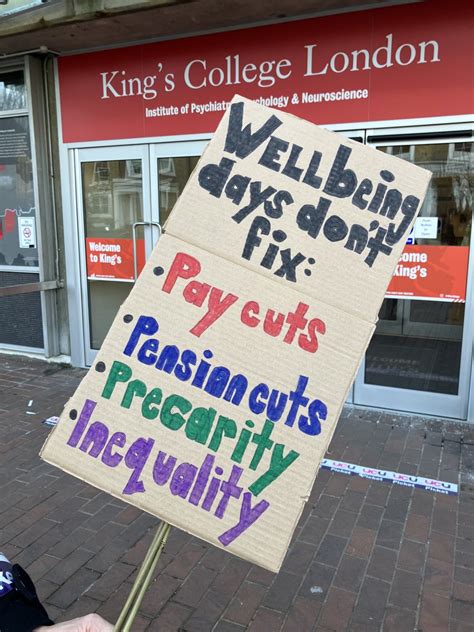 King's College London
Institute of Psychiatry, Psychology & Neuroscience
Wellbeing
days don't
fix:
Pay cuts
Pension cuts
Precarity
Inequality
Welcome to
King's
King's
UCU
Picket
UCU
Picket